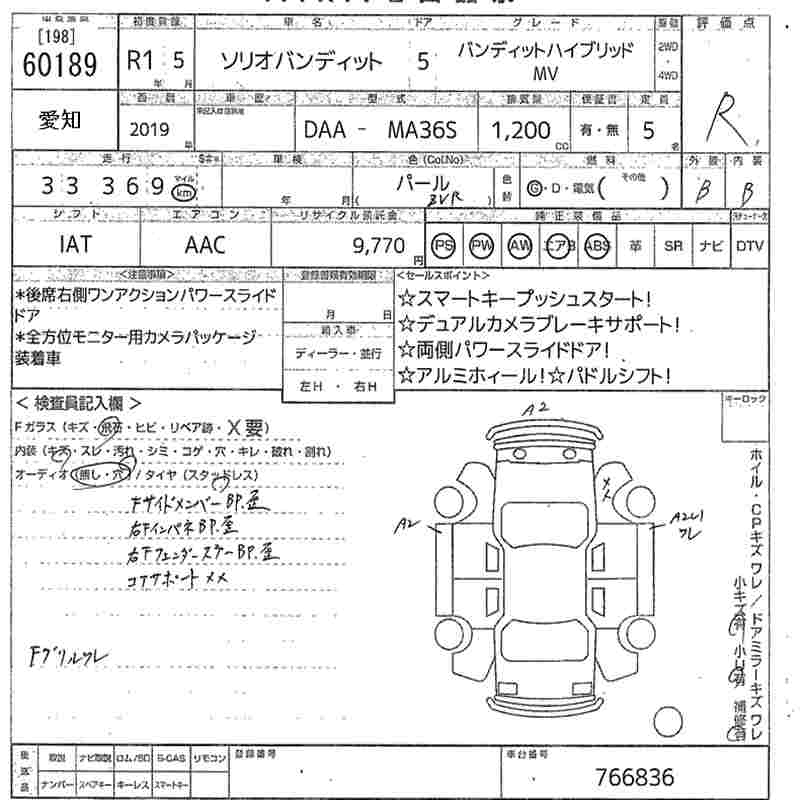 [198]
60189
愛知
初度登録
R1 5
年 月
車 名
ソリオバンディット
ドア
5
グレード
バンディットハイブリッド
MV
2WD
・
4WD
評価点
R
西暦
2019
年
車歴
型式
DAA - MA36S
排気量
1,200
CC
保証書
有・無
定員
5
名
走行
33 369
マイル
km
車検
年 月
色 (Col.No)
パール
色替
燃料
G・D・電気(その他 )
外装
B
内装
B
シフト
IAT
エアコン
AAC
リサイクル預託金
9,770
円
純正装備品
PS PW AW エアB ABS 革 SR ナビ DTV
<注意事項>
*後席右側ワンアクションパワースライド
ドア
*全方位モニター用カメラパッケージ
装着車
登録書類有効期限
月 日
輸入車
ディーラー・並行
左H ・ 右H
<セールスポイント>
☆スマートキープッシュスタート!
☆デュアルカメラブレーキサポート!
☆両側パワースライドドア!
☆アルミホィール!☆パドルシフト!
キーロック
< 検査員記入欄 >
Fガラス (キズ・飛石・ヒビ・リペア跡・X要)
内装 (キズ・スレ・汚れ・シミ・コゲ・穴・キレ・破れ・割れ)
オーディオ(無し・穴)/タイヤ(スタッドレス)
FサイドメンバーBP.歪
右FインパネBP.歪
右FフェンダーステーBP.歪
コアサポートXX
Fグリルワレ
A2
A2
ワレ
ホイル・CPキズワレ/ドアミラーキズワレ
小キズ有 小U有 補修有
後送品
取説 ナビ取説 ロム/SD S-GAS リモコン
ナンバー スペアキー キーレス スマートキー
登録番号
車台番号
766836